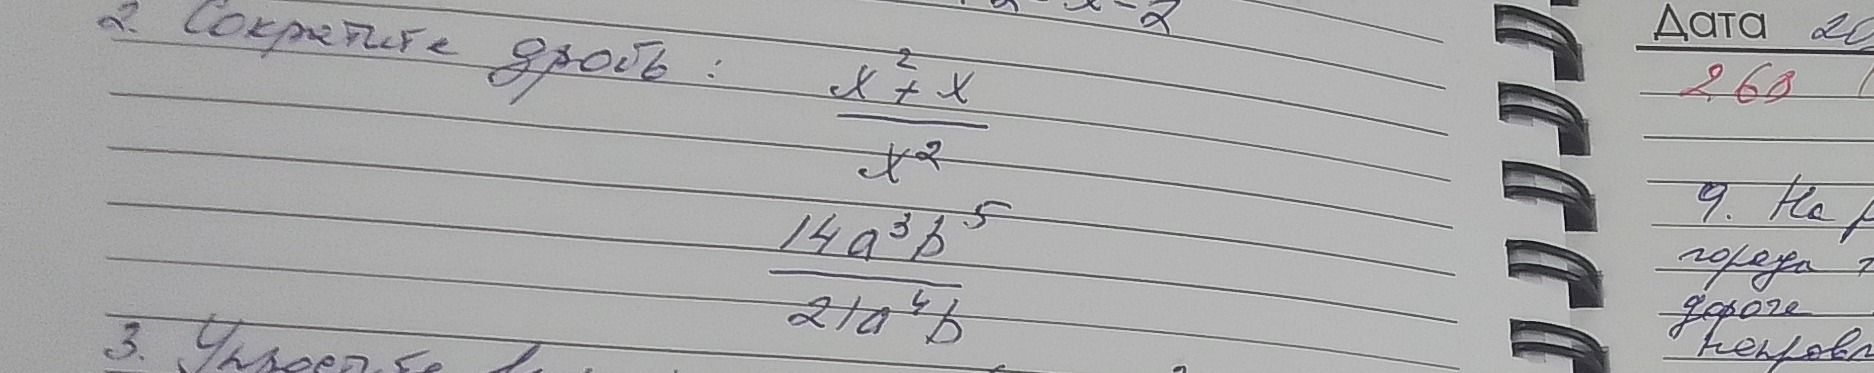 2. Сократите дробь:
x² + x
x²
14a³b⁵
21a⁴b
3. Упростите
Дата
268
9. На
города
дороге